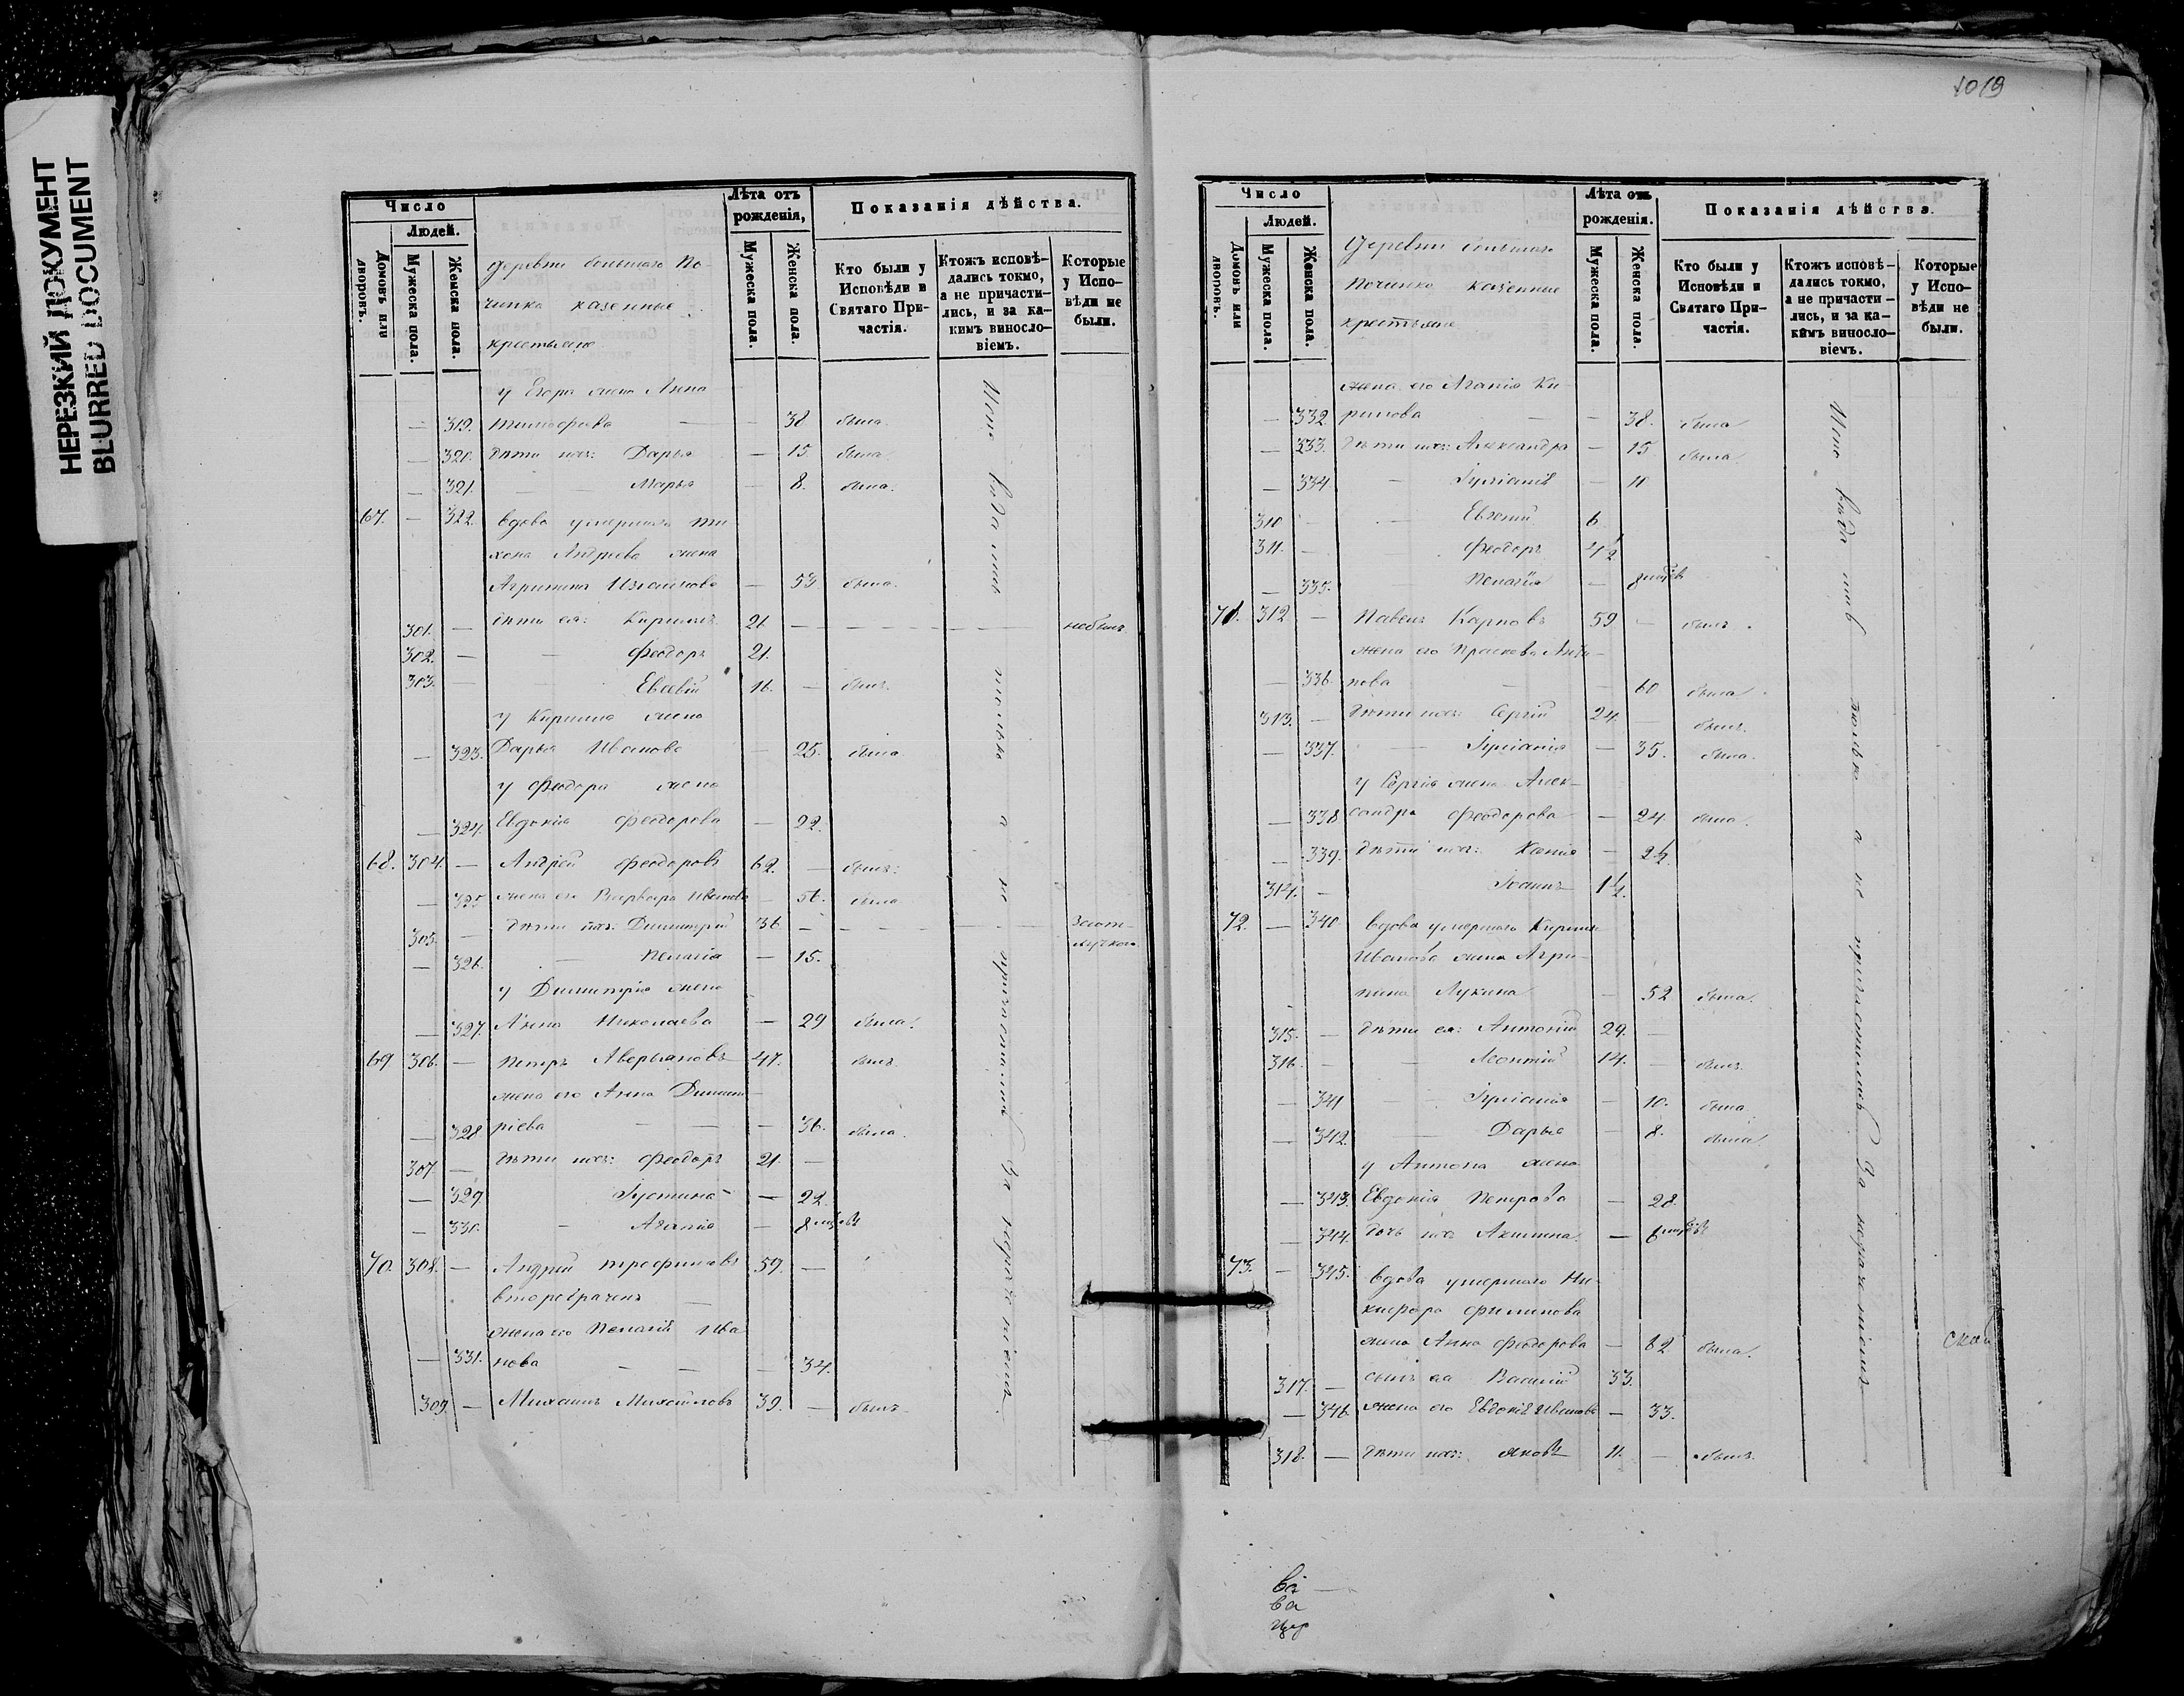 НЕРЕЗКИЙ ДОКУМЕНТ
BLURRED DOCUMENT
1019
Число
Людей.
Домовъ или дворовъ.
Мужеска пола.
Женска пола.
Деревни большаго По-
чинка казенные
крестьяне
Лѣта отъ рожденія,
Мужеска пола.
Женска пола.
Показанія дѣйства.
Кто были у Исповѣди и Святаго Причастія.
Ктожъ исповѣдались токмо, а не причастились, и за какимъ винословіемъ.
Которые у Исповѣди не были.
у Егора жена Анна
— 319. Тимофеева — — 38 была.
— 320. дѣти ихъ: Дарья — 15. была.
— 321. — Марья — 8. была.
67. — 322. вдова умершаго Ти
хона Андреева жена
Агрипина Измаилова — 53 была.
301. — дѣти ея: Кириллъ 21. — небылъ.
302. — — Феодоръ 21.
303. — — Евсевій 16. — былъ.
у Кирилла жена
— 323. Дарья Иванова — 25. была
у Феодора жена
— 324. Евдокія Феодорова — 22.
68. 304. — Андрей Феодоровъ 62. — былъ.
— 325 жена его Варвара Иванова — 56. была
305. — дѣти ихъ: Димитрій 36 —
— 326. — Пелагія — 15.
у Димитрія жена
— 327. Анна Николаева — 29 была.
69 306. — Петръ Аверьяновъ 47. былъ.
жена его Анна Димит-
— 328. ріева — — — 36. была.
307. — дѣти ихъ: Феодоръ 21. —
— 329. Іустина — 22.
— 330. — Агапія — 8 мѣс.
70. 308. — Андрей Трофимовъ 59. —
второбраченъ —
жена его Пелагія Ива
— 331. нова — — — 34.
309. — Михаилъ Михайловъ 39. — былъ.
Исповѣдались только а не причастились за нерачениемъ.
Число
Людей.
Домовъ или дворовъ.
Мужеска пола.
Женска пола.
Деревни большаго
Починка казенные
крестьяне
Лѣта отъ рожденія.
Мужеска пола.
Женска пола.
Показанія дѣйства.
Кто были у Исповѣди и Святаго Причастія.
Ктожъ исповѣдались токмо, а не причастились, и за какимъ винословіемъ.
Которые у Исповѣди не были.
жена его Агапія Ки
— 332. рилова — — 38. была
— 333. дѣти ихъ: Александра — 15 была.
— 334 — Іуліанія — 11
310 — — Евгеній 6
311. — Феодоръ 4½
— 335. Пелагія — 8 мѣс.
71. 312 — Павелъ Карповъ 59 — былъ.
жена его Прасковья Анти-
— 336. пова — — 60 была.
313. — дѣти ихъ: Сергій 24 — былъ.
— 337. — Іуліанія — 35. была.
у Сергія жена Алек-
— 338 сандра Феодорова — 24. была.
— 339. дѣти ихъ: Ксенія — 2½.
314. — Іоаннъ 1½.
72. — 340 вдова умершаго Кирилла
Иванова жена Агри-
пина Лукина — 52 была.
315. — дѣти ея: Антоній 29. —
316. — — Леонтій 14. — былъ.
— 341 — Іуліанія — 10. была
— 342. — Дарья — 8. была.
у Антона жена
— 343. Евдокія Петрова — 28.
— 344. дочь ихъ Акилина — 6 мѣс.
73. — 345. вдова умершаго Ни-
кифора Филипова
жена Анна Феодорова — 62 была.
317. — сынъ ея Василій 33.
— 346. жена его Евдокія Иванова — 33.
318. — дѣти ихъ: Яковъ 11. — былъ.
Исповѣдались только а не причастились За нерачениемъ
ской
ва